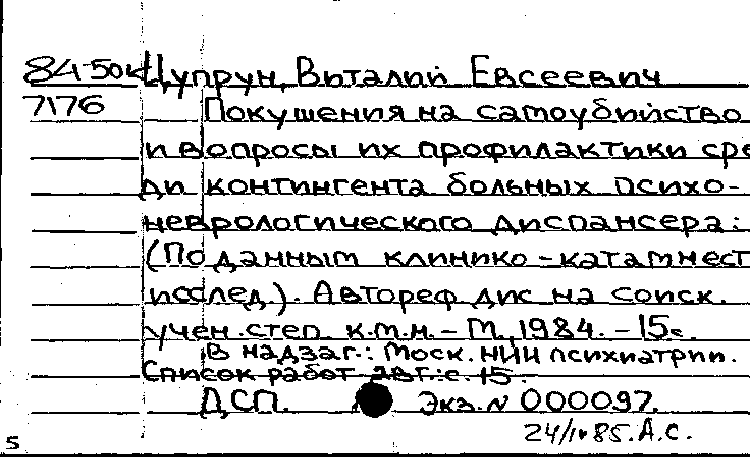 84-50к Цупрун, Виталий Евсеевич
7176 Покушения на самоубийство
и вопросы их профилактики сре
ди контингента больных психо-
неврологического диспансера:
(По данным клинико-катамнест
исслед.). Автореф дис на соиск.
учен. степ. к.м.н. - М., 1984. - 15с.
В надзаг.: Моск. НИИ психиатрии.
Список работ авт.: с. 15.
ДСП. Экз. N 000097.
85. А.С.
5